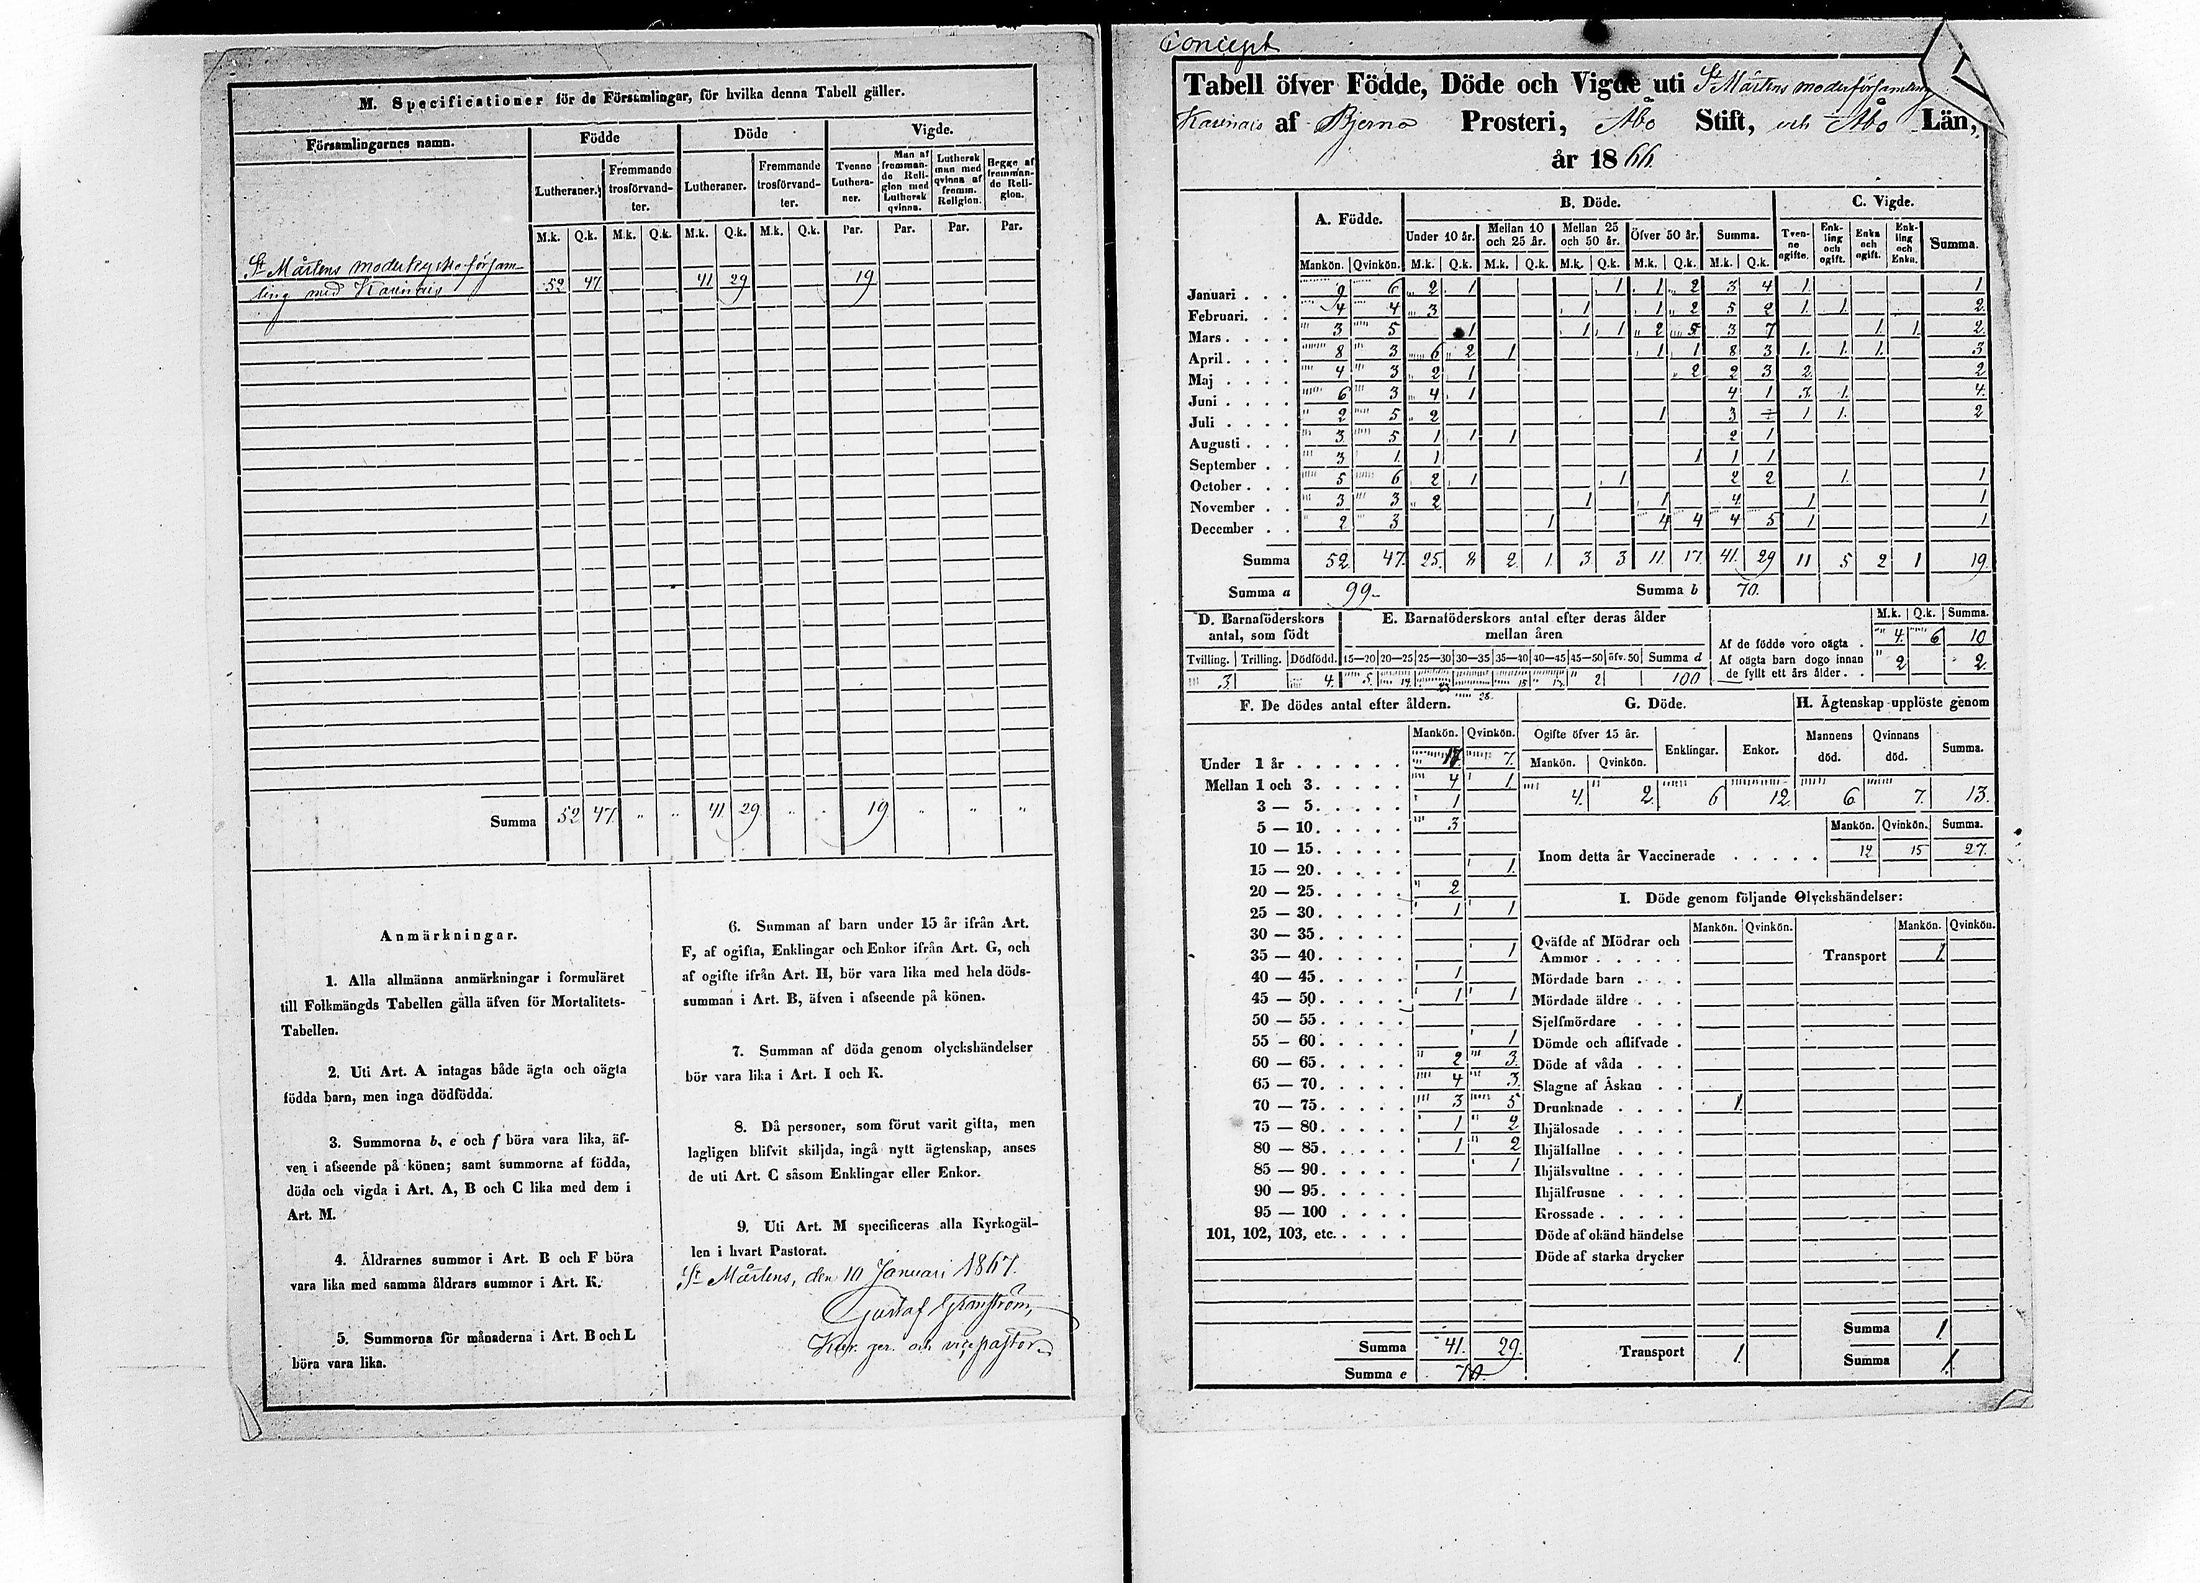 M. Specificationer för de Församlingar, för hvilka denna Tabell gäller.
Församlingarnes namn. Födde Döde Vigde.
Lutheraner. Fremmande trosförvandter. Lutheraner. Fremmande trosförvandter. Tvenne Lutheraner. Man af fremmande Religion med Luthersk qvinna. Luthersk man med qvinna af fremm. Religion. Begge af fremmande Religion.
M.k. Q.k. M.k. Q.k. M.k. Q.k. M.k. Q.k. Par. Par. Par. Par.
St Mårtens moderkyrko församling
med Karinais 52 47 41 29 19
Summa 52 47 " " 41 29 " " 19 " " "
Anmärkningar.
1. Alla allmänna anmärkningar i formuläret
till Folkmängds Tabellen gälla äfven för Mortalitets-
Tabellen.
2. Uti Art. A intagas både ägta och oägta
födda barn, men inga dödfödda.
3. Summorna b, e och f böra vara lika, äf-
ven i afseende på könen; samt summorna af födda,
döda och vigda i Art. A, B och C lika med dem i
Art. M.
4. Åldrarnes summor i Art. B och F böra
vara lika med samma åldrars summor i Art. K.
5. Summorna för månaderna i Art. B och L
böra vara lika.
6. Summan af barn under 15 år ifrån Art.
F, af ogifta, Enklingar och Enkor ifrån Art. G, och
af ogifte ifrån Art. H, bör vara lika med hela döds-
summan i Art. B, äfven i afseende på könen.
7. Summan af döda genom olyckshändelser
bör vara lika i Art. I och K.
8. Då personer, som förut varit gifta, men
lagligen blifvit skiljda, ingå nytt ägtenskap, anses
de uti Art. C såsom Enklingar eller Enkor.
9. Uti Art. M specificeras alla Kyrkogäl-
len i hvart Pastorat.
St Mårtens, den 10 Januari 1867.
Gustaf Granström,
vicepastor
Concept
Tabell öfver Födde, Döde och Vigde uti St Mårtens moderförsamling
Karinais af Bjerno Prosteri, Åbo Stift, och Åbo Län,
år 1866
A. Födde. B. Döde. C. Vigde.
Under 10 år. Mellan 10 och 25 år. Mellan 25 och 50 år. Öfver 50 år. Summa. Tvenne ogifte. Enkling och ogift. Enka och ogift. Enkling och Enka. Summa.
Mankön. Qvinkön. M.k. Q.k. M.k. Q.k. M.k. Q.k. M.k. Q.k. M.k. Q.k.
Januari . . . 9 6 2 1 1 1 2 3 4 1 1
Februari. . . 4 4 3 1 1 2 5 2 1 1 2
Mars . . . . 3 5 1 1 1 2 5 3 7 1 1 2
April . . . . 8 3 6 2 1 1 1 8 3 1 1 1 3
Maj . . . . 4 3 2 1 2 2 3 2 2
Juni . . . . 6 3 4 1 4 1 3 1 4
Juli . . . . 2 5 2 1 3 1 1 2
Augusti . . . 3 5 1 1 1 2 1
September . . 3 1 1 1 1 1
October . . . 5 6 2 1 1 2 2 1 1
November . . 3 3 2 1 1 4 1 1
December . . 2 3 1 4 4 4 5 1 1
Summa 52 47 25 8 2 1 3 3 11 17 41 29 11 5 2 1 19
Summa a 99 Summa b 70.
D. Barnaföderskors antal, som födt
E. Barnaföderskors antal efter deras ålder mellan åren
Tvilling. Trilling. Dödfödd. 15—20 20—25 25—30 30—35 35—40 40—45 45—50 öfv. 50 Summa d
3 4 5 14 28 15 13 2 100
M.k. Q.k. Summa.
Af de födde voro oägta . 4 6 10
Af oägta barn dogo innan de fyllt ett års ålder . . 2 2
F. De dödes antal efter åldern.
Mankön. Qvinkön.
Under 1 år . . . . . . 17 7
Mellan 1 och 3. . . . . 4 1
3 — 5. . . . . 1
5 — 10. . . . . 3
10 — 15. . . . .
15 — 20. . . . . 1
20 — 25. . . . . 2
25 — 30. . . . . 1 1
30 — 35. . . . .
35 — 40. . . . . 1
40 — 45. . . . . 1
45 — 50. . . . . 1 1
50 — 55. . . . .
55 — 60. . . . . 1
60 — 65. . . . . 2 3
65 — 70. . . . . 4 3
70 — 75. . . . . 3 5
75 — 80. . . . . 1 2
80 — 85. . . . . 1 2
85 — 90. . . . . 1
90 — 95. . . . .
95 — 100 . . . .
101, 102, 103, etc. . . . .
Summa 41. 29.
Summa e 70.
G. Döde.
Ogifte öfver 15 år. Enklingar. Enkor.
Mankön. Qvinkön.
4 2 6 12
H. Ägtenskap upplöste genom
Mannens död. Qvinnans död. Summa.
6 7 13.
Mankön. Qvinkön. Summa.
Inom detta år Vaccinerade . . . . . 12 15 27.
I. Döde genom följande Olyckshändelser:
Mankön. Qvinkön. Mankön. Qvinkön.
Qväfde af Mödrar och Ammor . . . . . Transport 1
Mördade barn . . .
Mördade äldre . . .
Sjelfmördare . . .
Dömde och aflifvade .
Döde af våda . . .
Slagne af Åskan . .
Drunknade . . . . 1
Ihjälosade . . . .
Ihjälfallne . . . .
Ihjälsvultne . . . .
Ihjälfrusne . . . .
Krossade . . . . .
Döde af okänd händelse
Döde af starka drycker
Summa 1.
Transport 1. Summa 1.